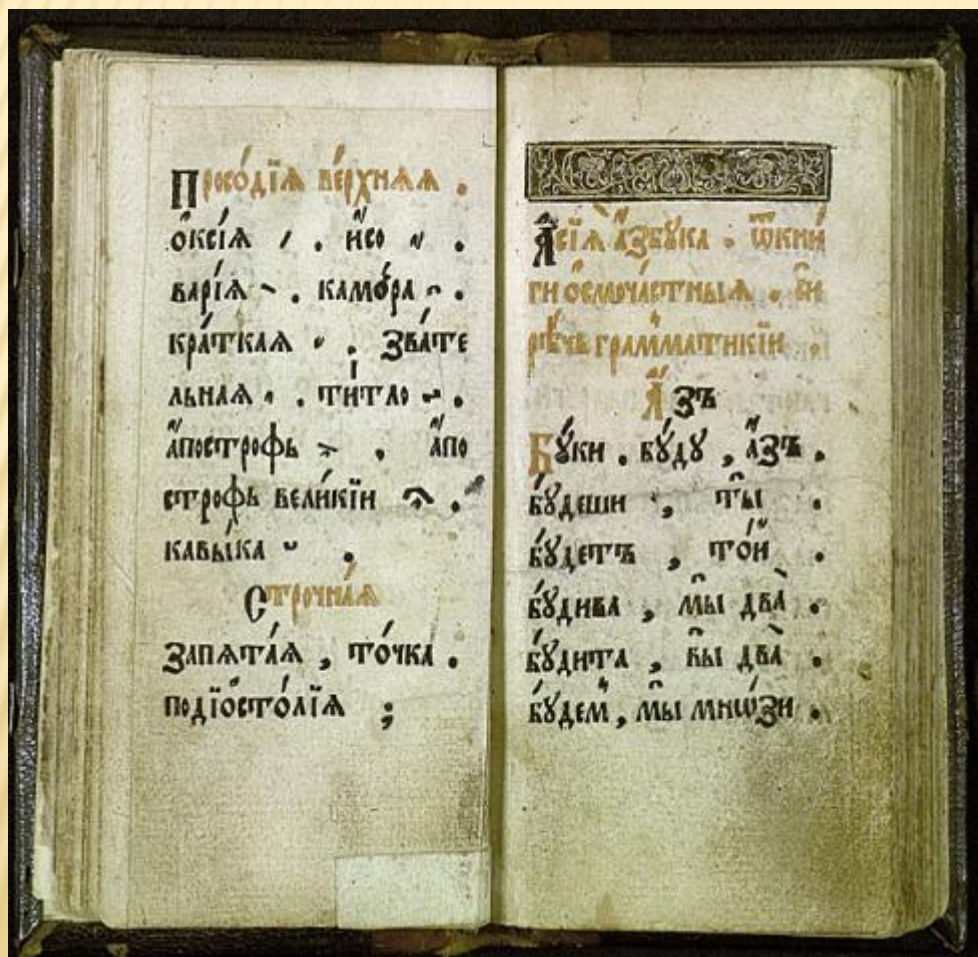 Просо́дїѧ ве́рхнѧѧ .
ѻ҆ксі́ѧ ́ . и҆со ҆ .
варі́ѧ ̀ . камо́ра ̑ .
кра́ткаѧ ̆ . зва́те
льнаѧ ҆ . ти́тло ҃ .
а҆построфь . а҆по
строфь вели́кїи .
кавы́ка .
Строчна́ѧ
Запѧта́ѧ , то́чка .
подїѡсто́лїѧ ;
А҆ сїѧ̀ а҆́збꙋка . ѿ кни́
ги ѻ҆смоча́стныѧ . си
рѣ́чь грамматикі́и .
А҆́зъ
Бꙋ́ки . бꙋ́дꙋ , а҆́зъ .
бꙋ́деши , ты̀ .
бꙋ́детъ , то́и .
бꙋ́дива , мы̀ два̀ .
бꙋ́дита , вы̀ два̀ .
бꙋ́дем , мы̀ мно́зи .